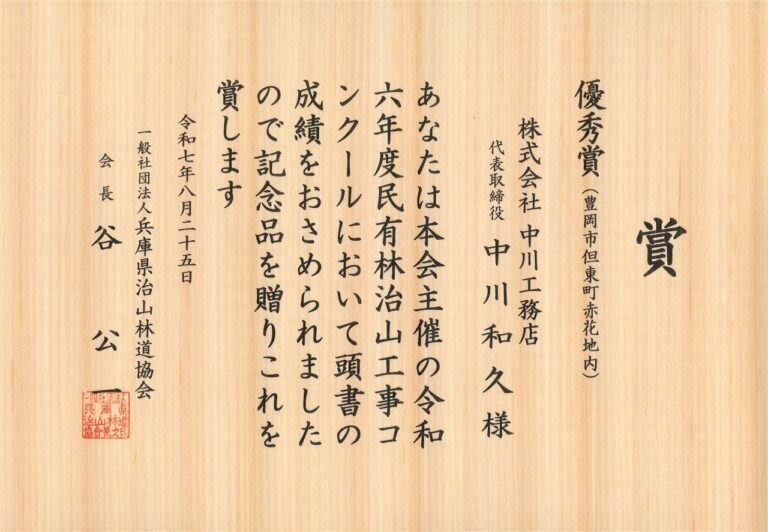 賞
優秀賞（豊岡市但東町赤花地内）
株式会社 中川工務店
代表取締役 中川和久様
あなたは本会主催の令和
六年度民有林治山工事コ
ンクールにおいて頭書の
成績をおさめられました
ので記念品を贈りこれを
賞します
令和七年八月二十五日
一般社団法人兵庫県治山林道協会
会長 谷 公一